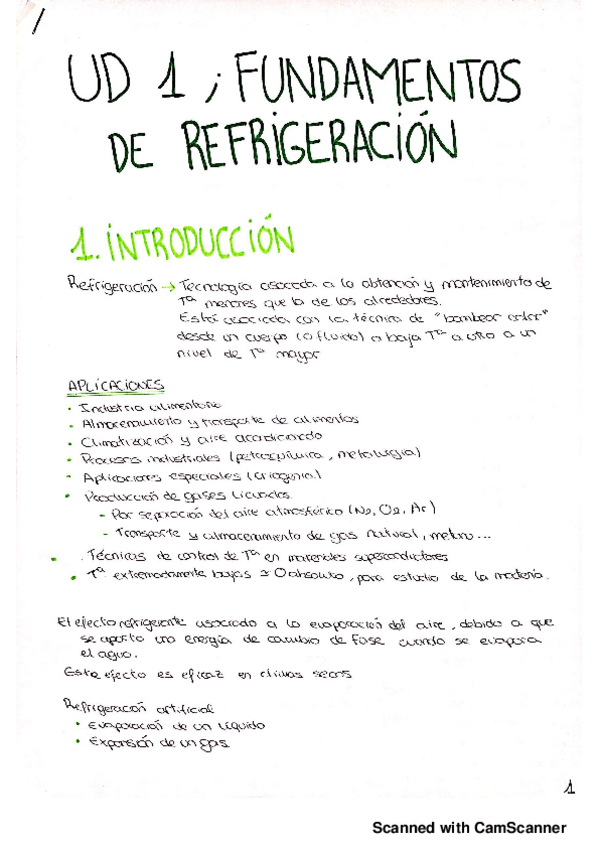 UD 1 ; FUNDAMENTOS
DE REFRIGERACIÓN
1. INTRODUCCIÓN
Refrigeración → Tecnología asociada a la obtención y mantenimiento de
Tª menores que la de los alrededores.
Está asociada con la técnica de "bombear calor"
desde un cuerpo (o fluido) a baja Tª a otro a un
nivel de Tª mayor
APLICACIONES
• Industria alimentaria
• Almacenamiento y transporte de alimentos
• Climatización y aire acondicionado
• Procesos industriales (petroquímica, metalurgia)
• Aplicaciones especiales (criogenia)
• Producción de gases licuados
- Por separación del aire atmosférico (N₂, O₂, Ar)
- Transporte y almacenamiento de gas natural, metano...
• Técnicas de control de Tª en materiales superconductores
• Tª extremadamente bajas ≃ 0 absoluto, para estudio de la materia.
El efecto refrigerante asociado a la evaporación del aire, debido a que
se aporta una energía de cambio de fase cuando se evapora
el agua.
Este efecto es eficaz en climas secos
Refrigeración artificial
• Evaporación de un líquido
• Expansión de un gas
1
Scanned with CamScanner